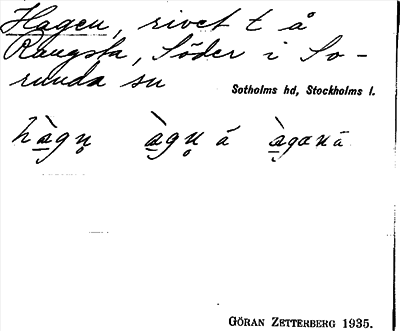 Hagen, rivet t å
Rangsta, Söder i So-
runda sn
Sotholms hd, Stockholms l.
hàgn̥ àgn̥ å àgana
GÖRAN ZETTERBERG 1935.